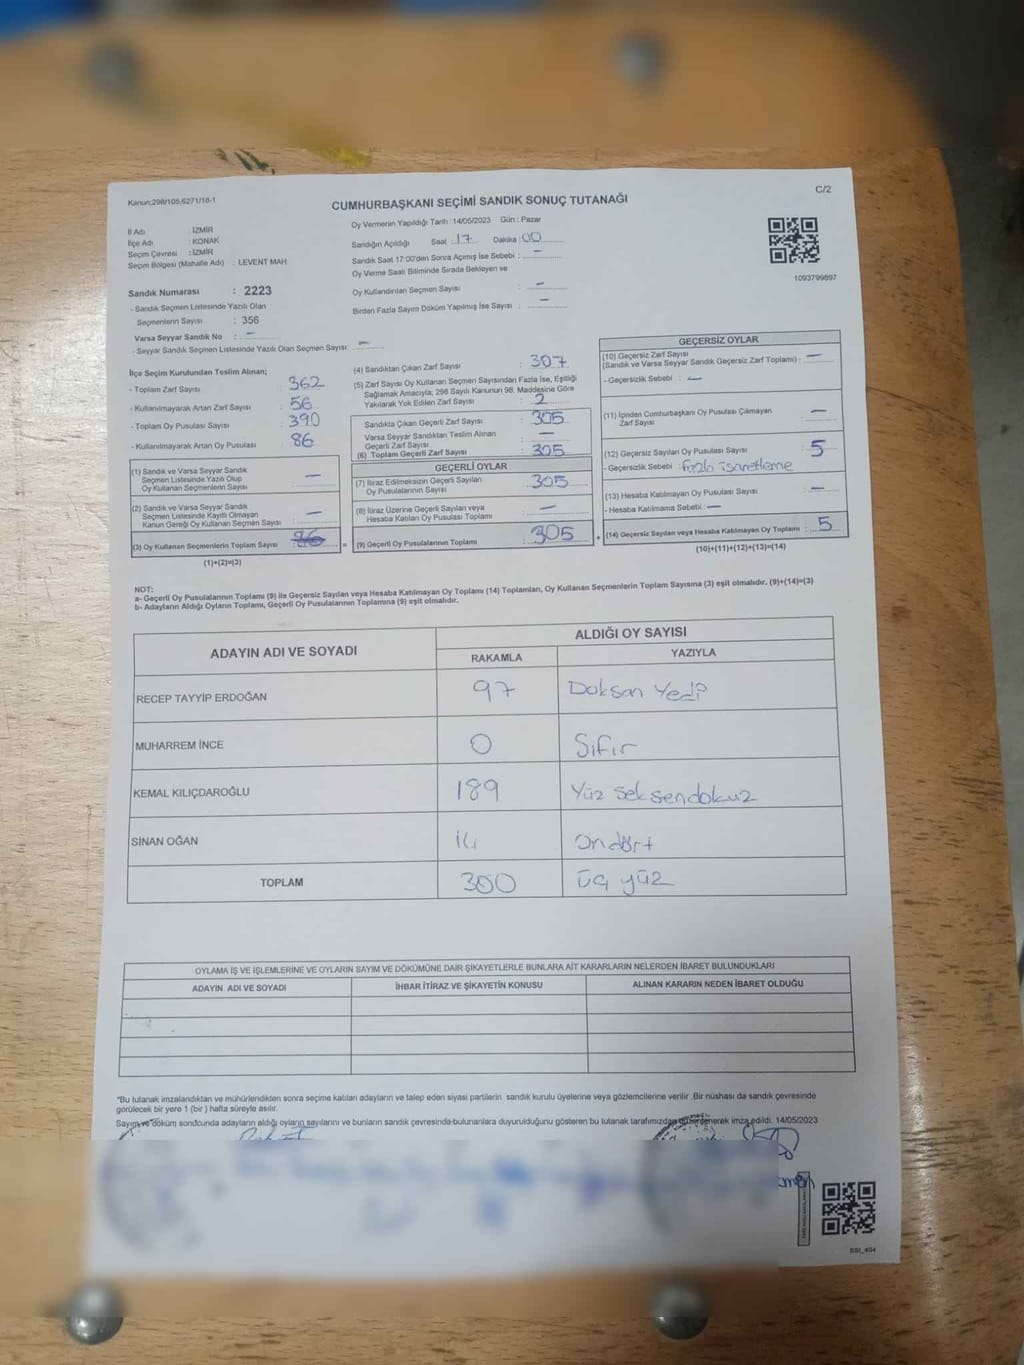 Kanun;298/105;6271/18-1
C/2
CUMHURBAŞKANI SEÇİMİ SANDIK SONUÇ TUTANAĞI
İl Adı : İZMİR
İlçe Adı : KONAK
Seçim Çevresi : İZMİR
Seçim Bölgesi (Mahalle Adı) : LEVENT MAH.
Sandık Numarası : 2223
- Sandık Seçmen Listesinde Yazılı Olan
Seçmenlerin Sayısı : 356
Varsa Seyyar Sandık No : -
- Seyyar Sandık Seçmen Listesinde Yazılı Olan Seçmen Sayısı: -
Oy Vermenin Yapıldığı Tarih :14/05/2023 Gün : Pazar
Sandığın Açıldığı Saat : 17 Dakika : 00
Sandık Saat 17:00'den Sonra Açımış İse Sebebi : -
Oy Verme Saati Bitiminde Sırada Bekleyen ve
Oy Kullandırılan Seçmen Sayısı : -
Birden Fazla Sayım Döküm Yapılmış İse Sayısı : -
1093799897
İlçe Seçim Kurulundan Teslim Alınan;
- Toplam Zarf Sayısı : 362
- Kullanılmayarak Artan Zarf Sayısı : 56
- Toplam Oy Pusulası Sayısı : 390
- Kullanılmayarak Artan Oy Pusulası : 86
(1) Sandık ve Varsa Seyyar Sandık
Seçmen Listesinde Yazılı Olup
Oy Kullanan Seçmenlerin Sayısı : -
(2) Sandık ve Varsa Seyyar Sandık
Seçmen Listesinde Kayıtlı Olmayan
Kanun Gereği Oy Kullanan Seçmen Sayısı : -
(3) Oy Kullanan Seçmenlerin Toplam Sayısı : 86
(1)+(2)=(3)
(4) Sandıktan Çıkan Zarf Sayısı : 307
(5) Zarf Sayısı Oy Kullanan Seçmen Sayısından Fazla İse, Eşitliği
Sağlamak Amacıyla; 298 Sayılı Kanunun 98. Maddesine Göre
Yakılarak Yok Edilen Zarf Sayısı : 2
Sandıkta Çıkan Geçerli Zarf Sayısı : 305
Varsa Seyyar Sandıktan Teslim Alınan
Geçerli Zarf Sayısı : -
(6) Toplam Geçerli Zarf Sayısı : 305
GEÇERLİ OYLAR
(7) İtiraz Edilmeksizin Geçerli Sayılan
Oy Pusulalarının Sayısı : 305
(8) İtiraz Üzerine Geçerli Sayılan veya
Hesaba Katılan Oy Pusulası Toplamı : -
(9) Geçerli Oy Pusulalarının Toplamı : 305
GEÇERSİZ OYLAR
(10) Geçersiz Zarf Sayısı
(Sandık ve Varsa Seyyar Sandık Geçersiz Zarf Toplamı) : -
- Geçersizlik Sebebi : -
(11) İçinden Cumhurbaşkanı Oy Pusulası Çıkmayan
Zarf Sayısı : -
(12) Geçersiz Sayılan Oy Pusulası Sayısı : 5
- Geçersizlik Sebebi : Fazla işaretleme
(13) Hesaba Katılmayan Oy Pusulası Sayısı : -
- Hesaba Katılmama Sebebi : -
(14) Geçersiz Sayılan veya Hesaba Katılmayan Oy Toplamı : 5
(10)+(11)+(12)+(13)=(14)
NOT:
a- Geçerli Oy Pusulalarının Toplamı (9) ile Geçersiz Sayılan veya Hesaba Katılmayan Oy Toplamı (14) Toplamları, Oy Kullanan Seçmenlerin Toplam Sayısına (3) eşit olmalıdır. (9)+(14)=(3)
b- Adayların Aldığı Oyların Toplamı, Geçerli Oy Pusulalarının Toplamına (9) eşit olmalıdır.
ADAYIN ADI VE SOYADI ALDIĞI OY SAYISI
RAKAMLA YAZIYLA
RECEP TAYYİP ERDOĞAN 97 Doksan Yedi
MUHARREM İNCE 0 Sıfır
KEMAL KILIÇDAROĞLU 189 Yüz seksendokuz
SİNAN OĞAN 14 Ondört
TOPLAM 300 üç yüz
OYLAMA İŞ VE İŞLEMLERİNE VE OYLARIN SAYIM VE DÖKÜMÜNE DAİR ŞİKAYETLERLE BUNLARA AİT KARARLARIN NELERDEN İBARET BULUNDUKLARI
ADAYIN ADI VE SOYADI İHBAR İTİRAZ VE ŞİKAYETİN KONUSU ALINAN KARARIN NEDEN İBARET OLDUĞU
*Bu tutanak imzalandıktan ve mühürlendikten sonra seçime katılan adayların ve talep eden siyasi partilerin sandık kurulu üyelerine veya gözlemcilerine verilir .Bir nüshası da sandık çevresinde
görülecek bir yere 1 (bir ) hafta süreyle asılır.
Sayım ve döküm sonucunda adayların aldığı oyların sayılarını ve bunların sandık çevresinde bulunanlara duyurulduğunu gösteren bu tutanak tarafımızdan düzenlenerek imza edildi. 14/05/2023